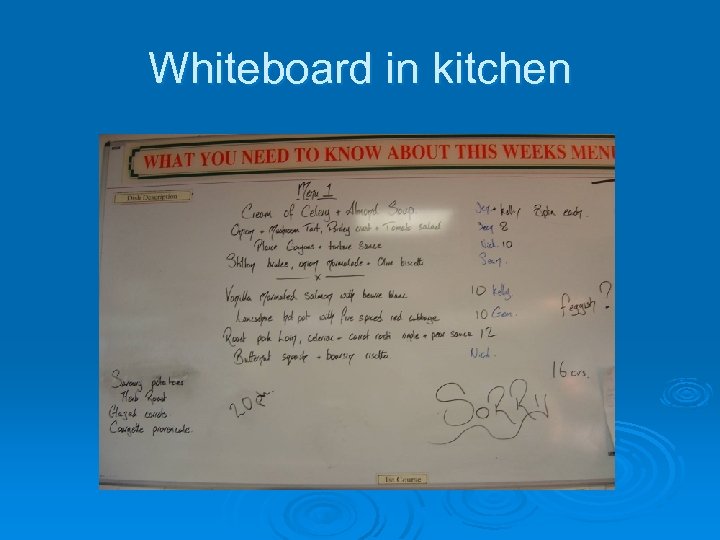 Whiteboard in kitchen
WHAT YOU NEED TO KNOW ABOUT THIS WEEKS MENU
Dish Description
Menu 1
Cream of Celery + Almond Soup. + Kelly
+ Mushroom Tart, crust + Tomato salad
Goujons + tartare sauce Nick 10
Stilton , onion Marmalade + Olive biscuits Sean
x
Vanilla Marinated Salmon with beurre blanc 10 Kelly
Lancashire hot pot with five spiced red cabbage 10 Gem.
Roast pork Loin, celeriac + carrot rosti apple + pear sauce 12
Butternut squash + boursin risotto Nick
?
16 cvs.
Savoury potatoes
Herb Roast
Glazed carrots.
Courgette provencale.
SORRY
1st Course